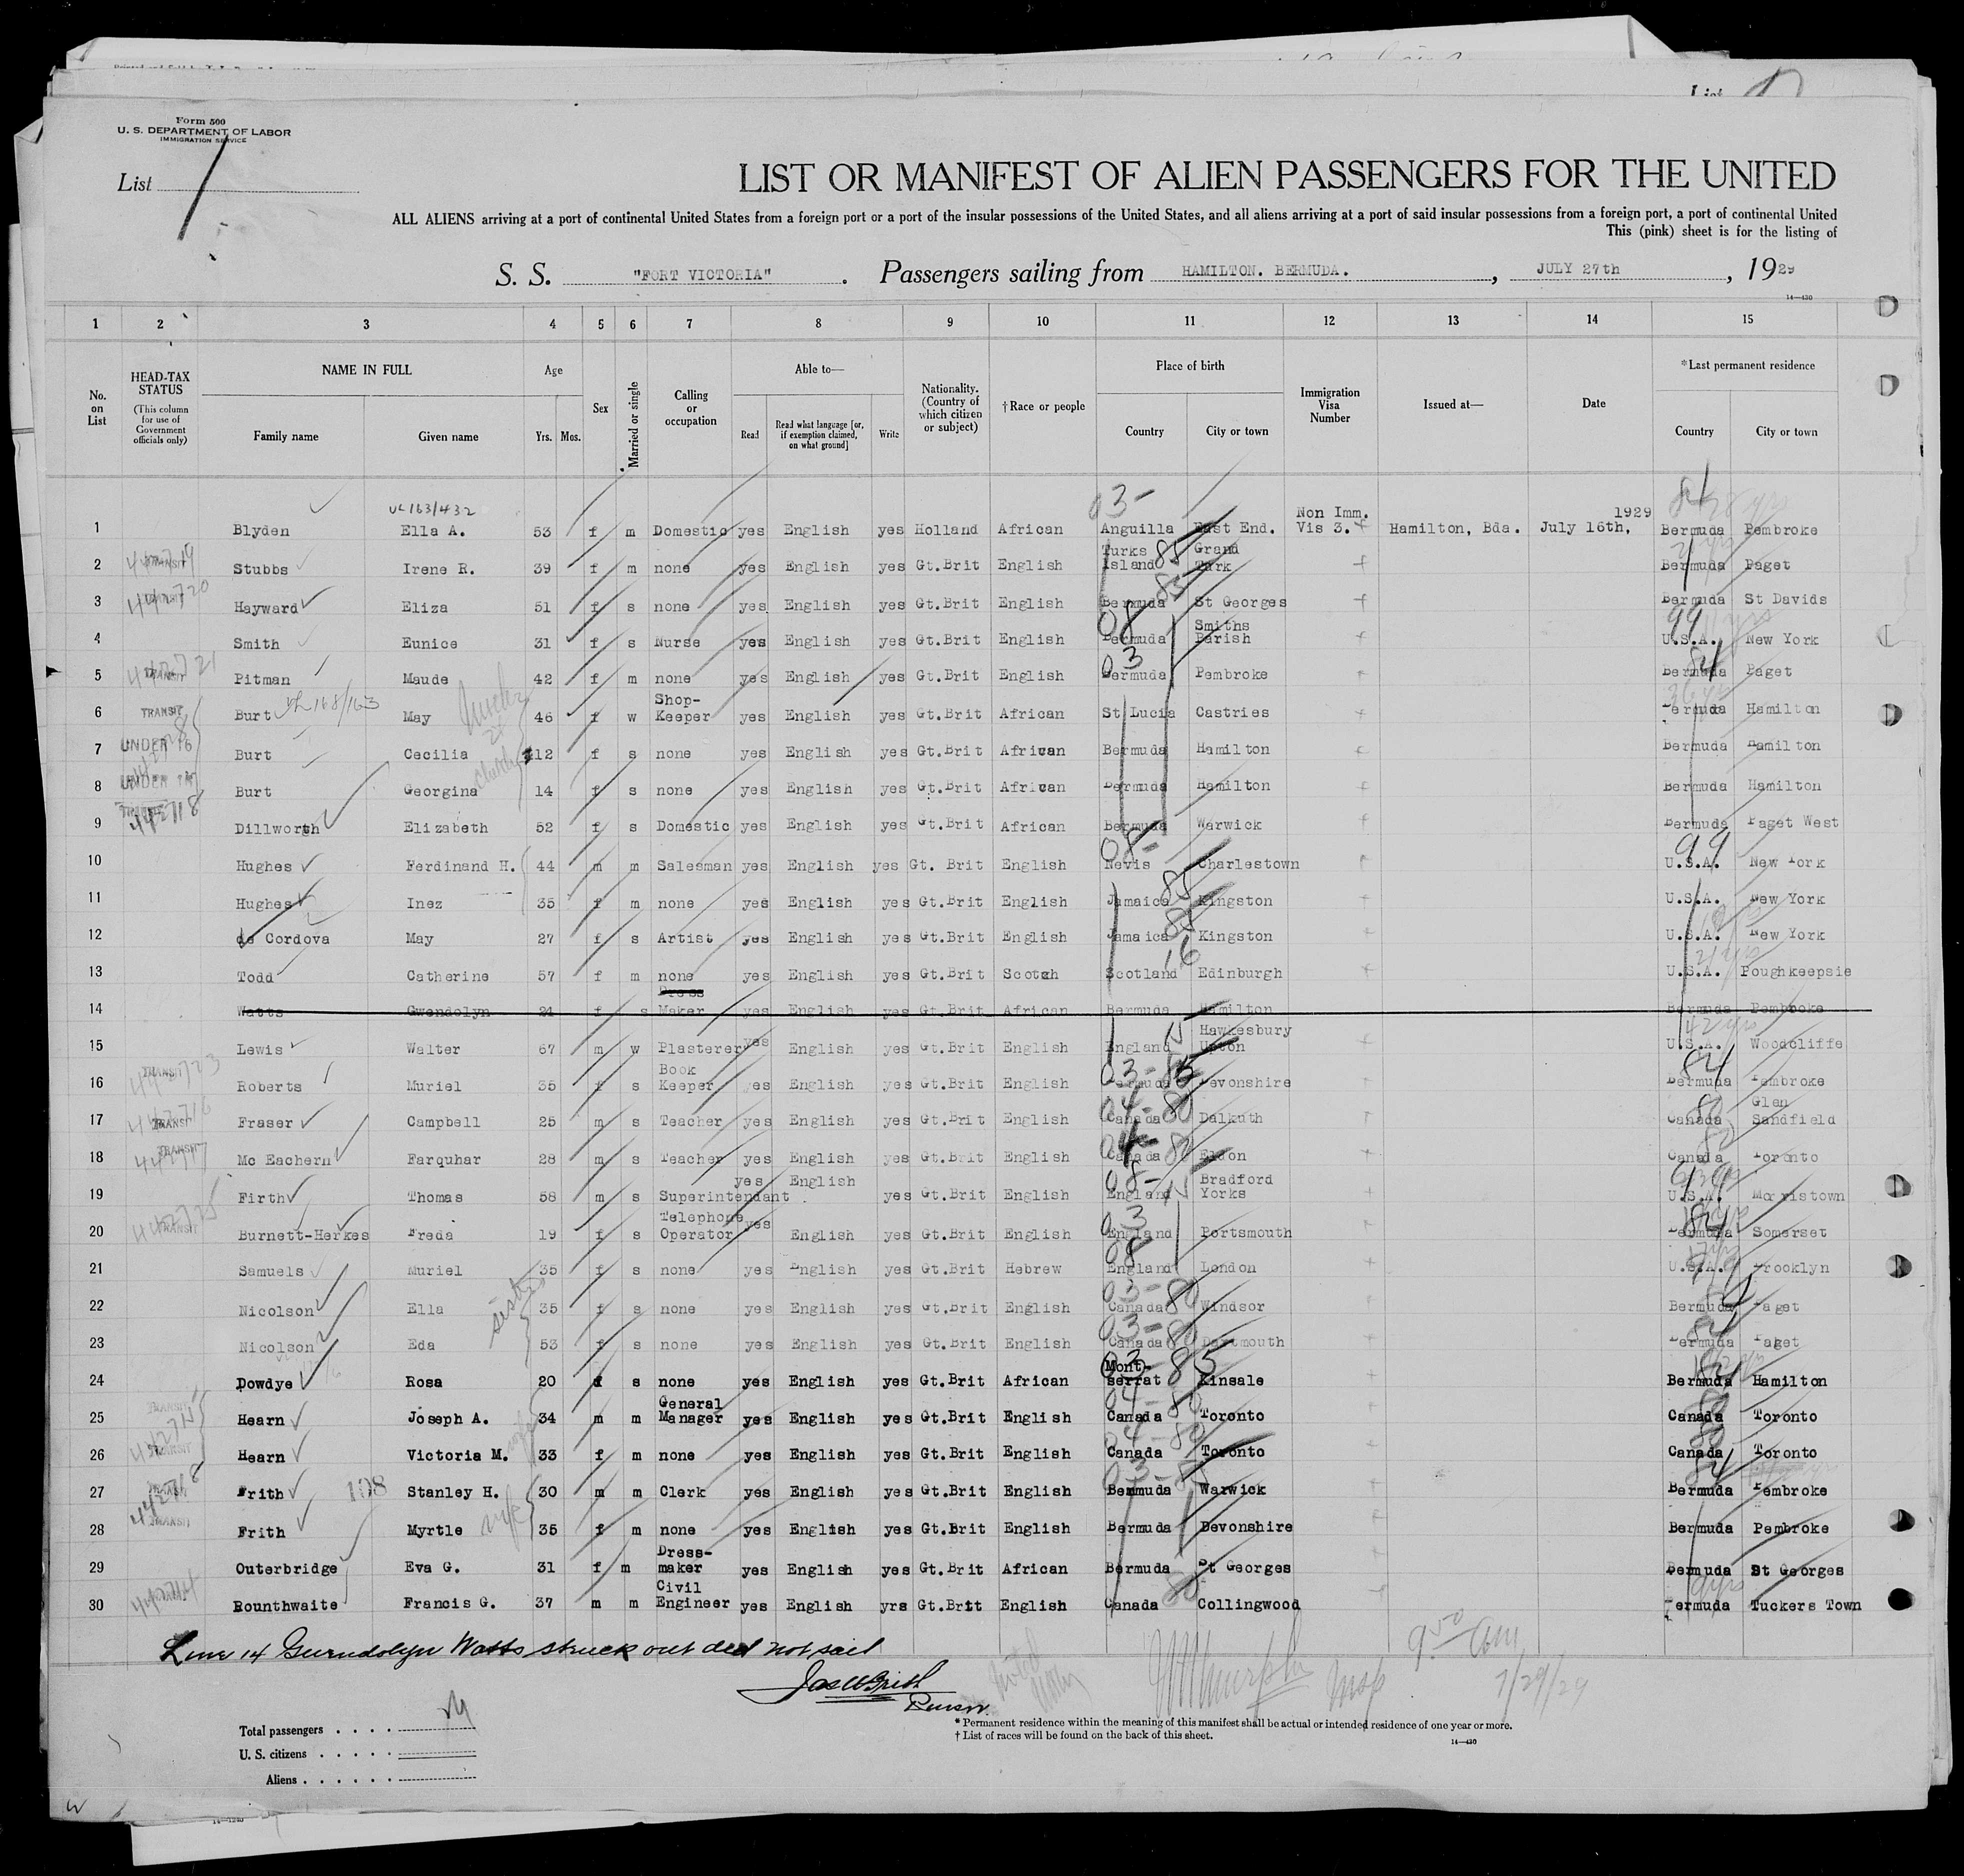 Form 500
U. S. DEPARTMENT OF LABOR
IMMIGRATION SERVICE
List
List 1
LIST OR MANIFEST OF ALIEN PASSENGERS FOR THE UNITED
ALL ALIENS arriving at a port of continental United States from a foreign port or a port of the insular possessions of the United States, and all aliens arriving at a port of said insular possessions from a foreign port, a port of continental United
This (pink) sheet is for the listing of
S. S. "FORT VICTORIA". Passengers sailing from HAMILTON. BERMUDA., JULY 27th, 1929
14—430
1 2 3 4 5 6 7 8 9 10 11 12 13 14 15
No. on List
HEAD-TAX STATUS (This column for use of Government officials only)
NAME IN FULL
Family name Given name
Age
Yrs. Mos.
Sex
Married or single
Calling or occupation
Able to—
Read
Read what language [or, if exemption claimed, on what ground]
Write
Nationality. (Country of which citizen or subject)
†Race or people
Place of birth
Country City or town
Immigration Visa Number
Issued at—
Date
*Last permanent residence
Country City or town
1 Blyden Ella A. 53 f m Domestic yes English yes Holland African Anguilla East End. Non Imm. Vis 3. Hamilton, Bda. July 16th, 1929 Bermuda Pembroke
2 TRANSIT Stubbs Irene R. 39 f m none yes English yes Gt.Brit English Turks Island Grand Turk Bermuda Paget
3 Hayward Eliza 51 f s none yes English yes Gt.Brit English Bermuda St Georges Bermuda St Davids
4 Smith Eunice 31 f s Nurse yes English yes Gt.Brit English Bermuda Smiths Parish U.S.A. New York
5 Pitman Maude 42 f m none yes English yes Gt.Brit English Bermuda Pembroke Bermuda Paget
6 TRANSIT Burt May 46 f w Shop-Keeper yes English yes Gt.Brit African St Lucia Castries Bermuda Hamilton
7 UNDER 16 Burt Cecilia 12 f s none yes English yes Gt.Brit African Bermuda Hamilton Bermuda Hamilton
8 UNDER Burt Georgina 14 f s none yes English yes Gt.Brit African Bermuda Hamilton Bermuda Hamilton
9 Dillworth Elizabeth 52 f s Domestic yes English yes Gt.Brit African Bermuda Warwick Bermuda Paget West
10 Hughes Ferdinand H. 44 m m Salesman yes English yes Gt. Brit English Nevis Charlestown U.S.A. New York
11 Hughes Inez 35 f m none yes English yes Gt.Brit English Jamaica Kingston U.S.A. New York
12 de Cordova May 27 f s Artist yes English yes Gt.Brit English Jamaica Kingston U.S.A. New York
13 Todd Catherine 57 f m none yes English yes Gt.Brit Scotch Scotland Edinburgh U.S.A. Poughkeepsie
14 Watts Gwendolyn 24 f s Dress Maker yes English yes Gt.Brit African Bermuda Hamilton Bermuda Pembroke
15 Lewis Walter 67 m w Plasterer yes English yes Gt.Brit English England Hawkesbury Upton U.S.A. Woodcliffe
16 TRANSIT Roberts Muriel 35 f s Book Keeper yes English yes Gt.Brit English Bermuda Devonshire Bermuda Pembroke
17 TRANSIT Fraser Campbell 25 m s Teacher yes English yes Gt.Brit English Canada Dalkuth Canada Glen Sandfield
18 TRANSIT Mc Eachern Farquhar 28 m s Teacher yes English yes Gt.Brit English Canada Eldon Canada Toronto
19 Firth Thomas 58 m s Superintendant yes English yes Gt.Brit English England Bradford Yorks U.S.A. Morristown
20 TRANSIT Burnett-Herkes Freda 19 f s Telephone Operator yes English yes Gt.Brit English England Portsmouth Bermuda Somerset
21 Samuels Muriel 35 f s none yes English yes Gt.Brit Hebrew England London U.S.A. Brooklyn
22 Nicolson Ella 35 f s none yes English yes Gt.Brit English Canada Windsor Bermuda Paget
23 Nicolson Eda 53 f s none yes English yes Gt.Brit English Canada Dartmouth Bermuda Paget
24 Dowdye Rosa 20 f s none yes English yes Gt.Brit African Mont-serrat Kinsale Bermuda Hamilton
25 Hearn Joseph A. 34 m m General Manager yes English yes Gt.Brit English Canada Toronto Canada Toronto
26 TRANSIT Hearn Victoria M. 33 f m none yes English yes Gt.Brit English Canada Toronto Canada Toronto
27 Frith Stanley H. 30 m m Clerk yes English yes Gt.Brit English Bermuda Warwick Bermuda Pembroke
28 TRANSIT Frith Myrtle wife 35 f m none yes English yes Gt.Brit English Bermuda Devonshire Bermuda Pembroke
29 Outerbridge Eva G. 31 f m Dress-maker yes English yes Gt.Brit African Bermuda St Georges Bermuda St Georges
30 Rounthwaite Francis G. 37 m m Civil Engineer yes English yrs Gt.Brit English Canada Collingwood Bermuda Tuckers Town
Line 14 Gwendolyn Watts struck out did not sail
Purser.
9 50 am
7/29/29
Total passengers
U. S. citizens
Aliens
* Permanent residence within the meaning of this manifest shall be actual or intended residence of one year or more.
† List of races will be found on the back of this sheet.
14—430